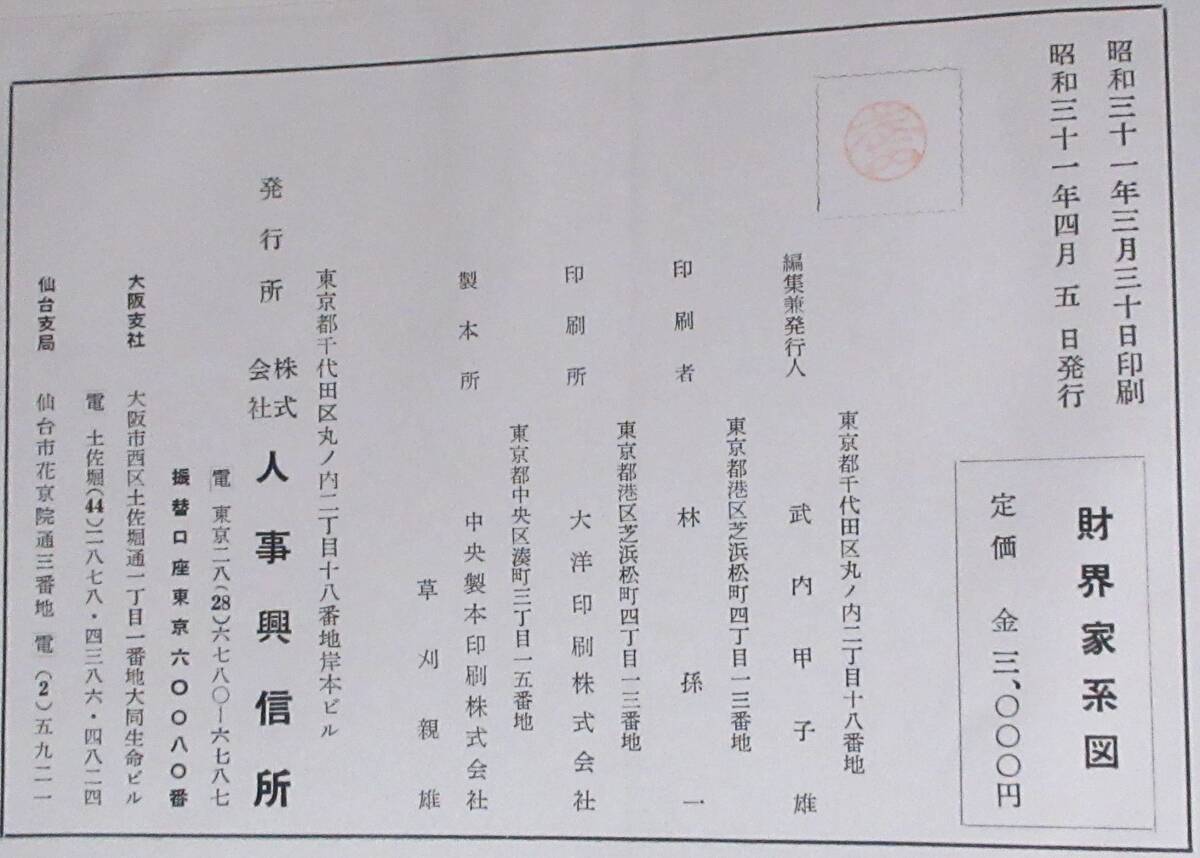 昭和三十一年三月三十日印刷
昭和三十一年四月五日発行
財界家系図
定価 金三、〇〇〇円
東京都千代田区丸ノ内二丁目十八番地
編集兼発行人 武内甲子雄
東京都港区芝浜松町四丁目一三番地
印刷者 林孫一
東京都港区芝浜松町四丁目一三番地
印刷所 大洋印刷株式会社
東京都中央区湊町三丁目一五番地
製本所 中央製本印刷株式会社
草刈親雄
東京都千代田区丸ノ内二丁目十八番地岸本ビル
発行所 株式会社 人事興信所
電 東京二八(28)六七八〇―六七八七
振替口座東京六〇〇八〇番
大阪支社 大阪市西区土佐堀通一丁目一番地大同生命ビル
電 土佐堀(44)二八七八・四三八六・四八二四
仙台支局 仙台市花京院通三番地 電(2)五九二一